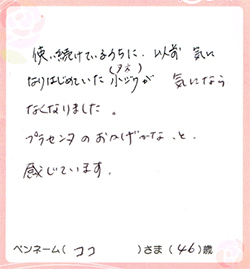 使い続けているうちに、以前 気に
なりはじめていた 小ジワ(タテ)が 気になら
なくなりました。
プラセンタのおかげかな、と
感じています。
ペンネーム( ココ )さま(46)歳